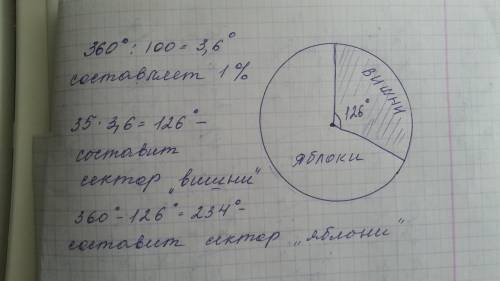 360° : 100 = 3,6°
составляет 1%
35 · 3,6 = 126° -
составит
сектор „вишни"
360° - 126° = 234° -
составит сектор „яблони"
вишни
126°
яблоки